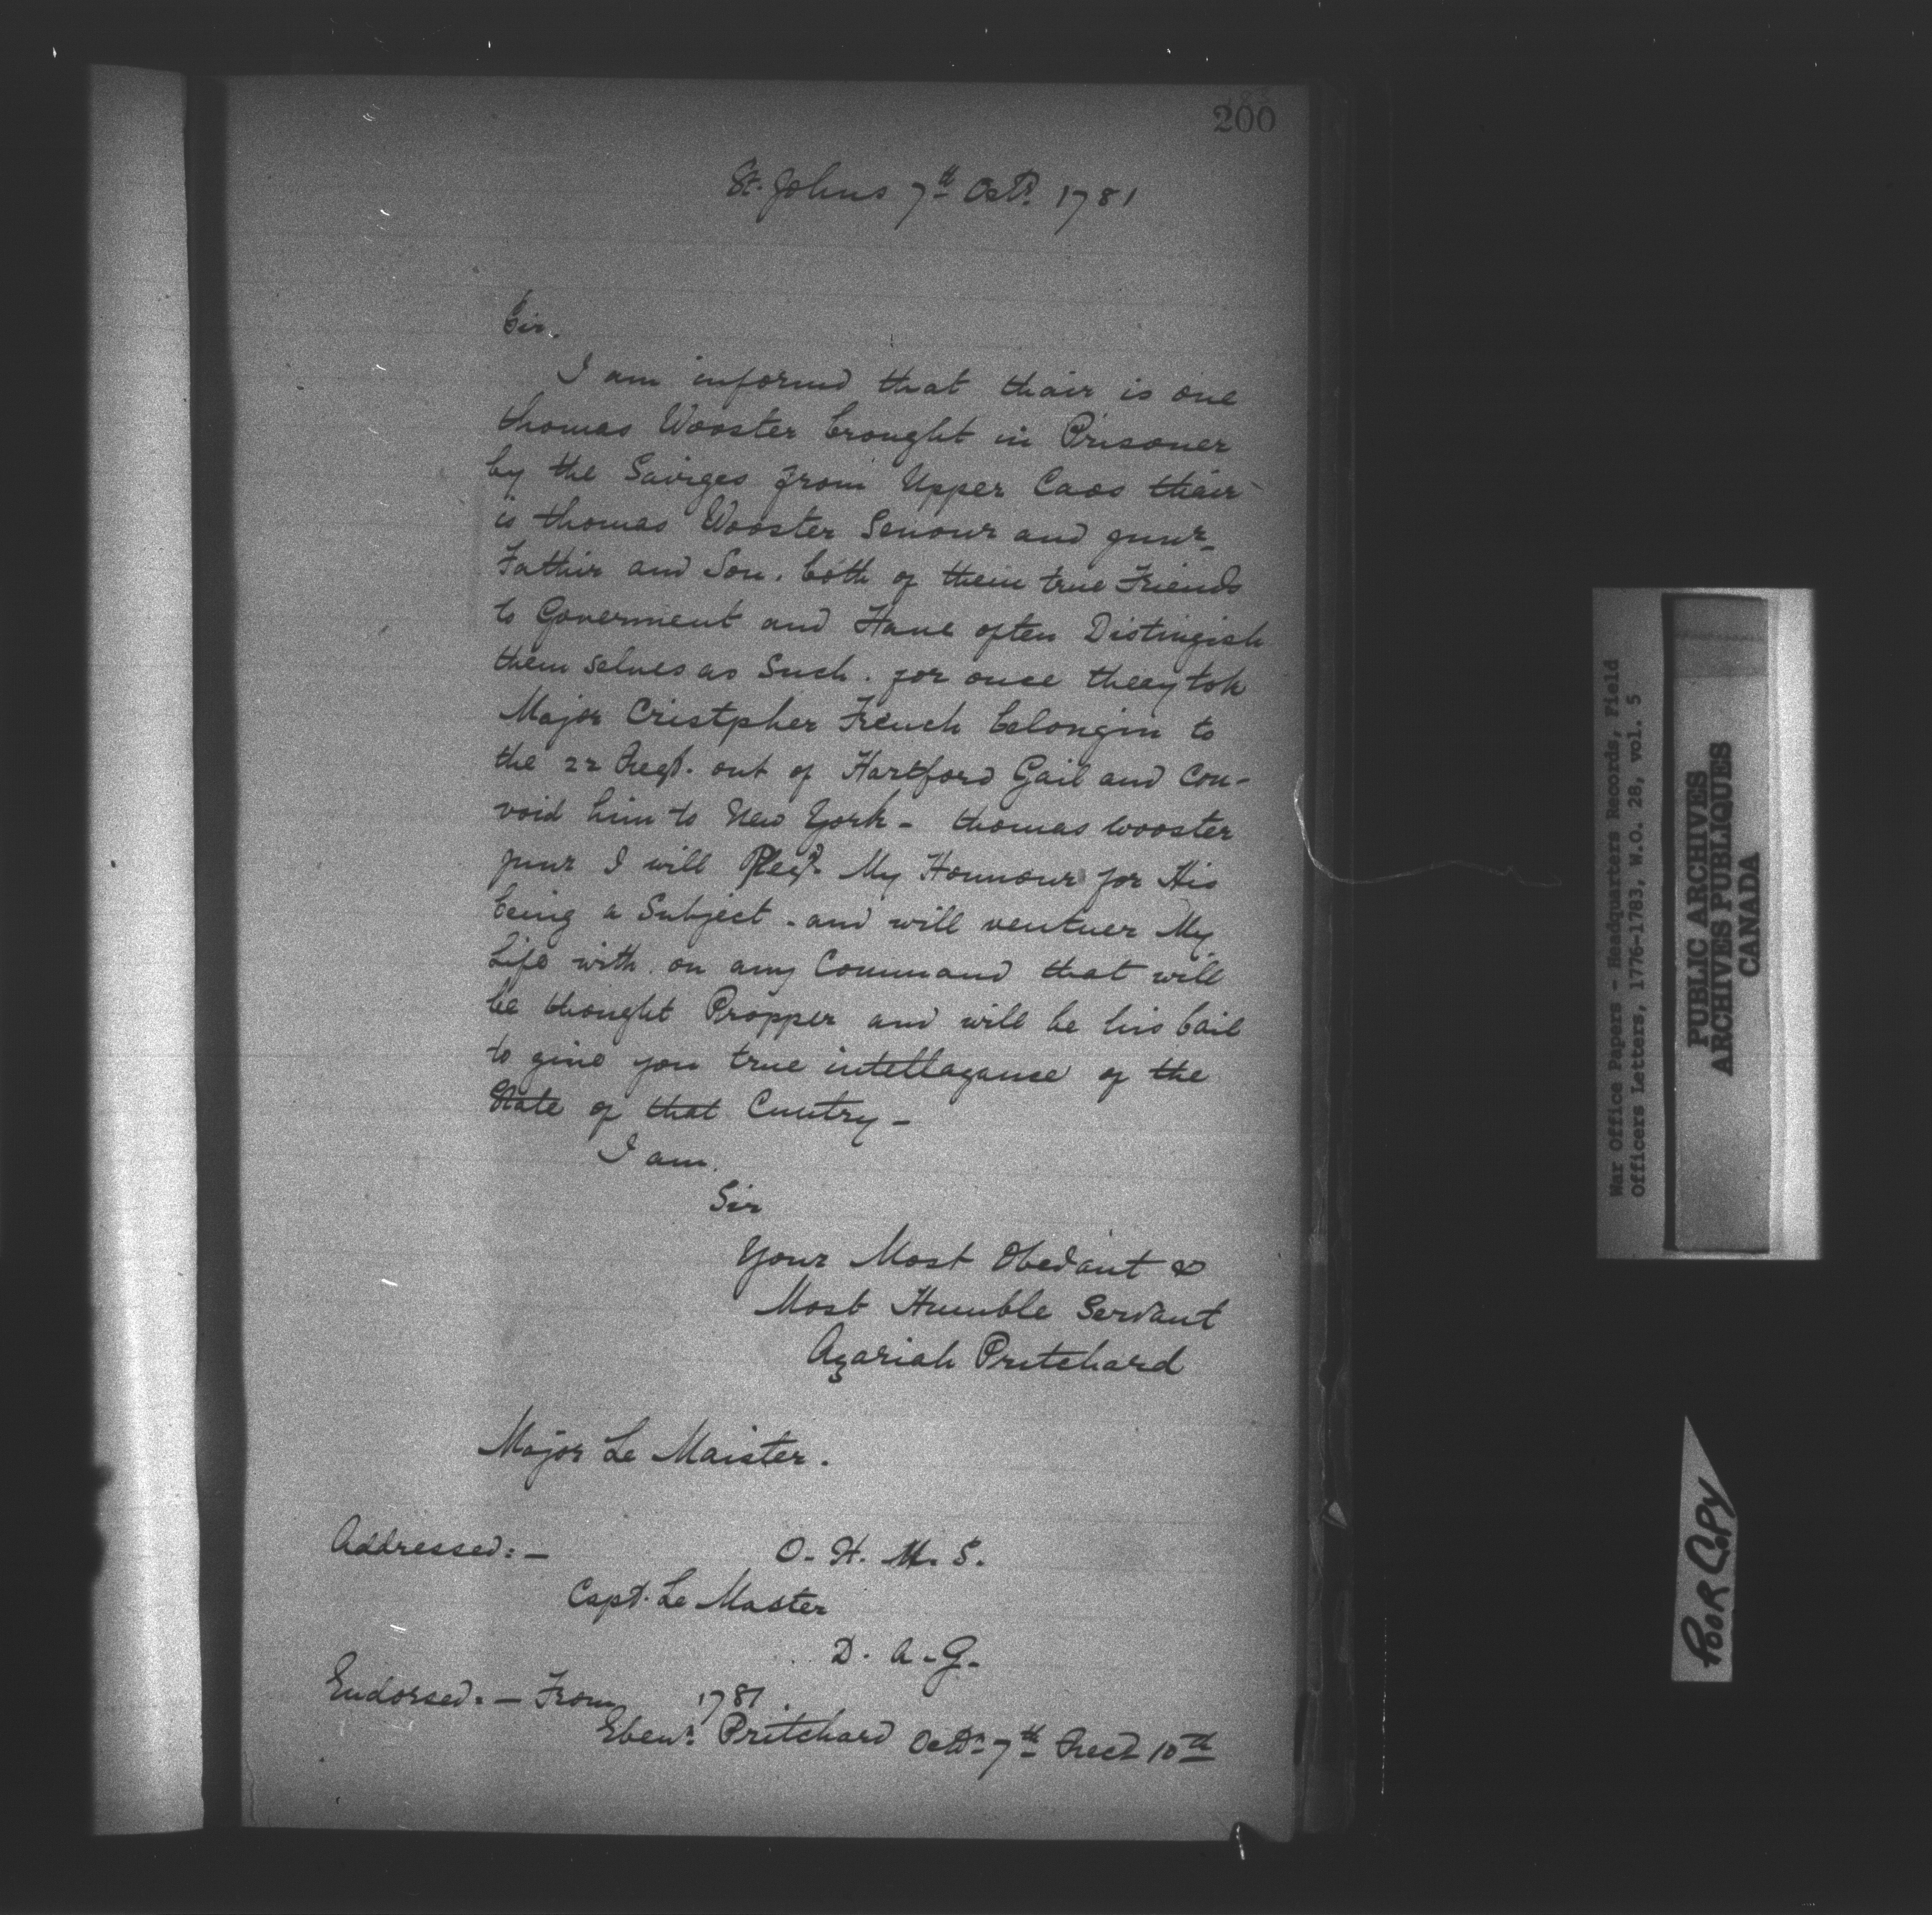 200
St. Johns 7th Octr. 1781
Sir,
I am informd that thair is one
thomas Wooster brought in Prisoner
by the Saviges from Upper Caos thair
is thomas Wooster Senour and junr-
Father and Son. both of them true Friends
to Goverment and Have often Distingish
them selves as Such. for once theey tok
Major Cristpher French belongin to
the 22 Regt. out of Hartford Gail and Con-
void him to New York - thomas Wooster
junr I will Plegd My Honnour for His
being a Subject - and will ventuer My
Life with on any Command that will
be thought Propper and will be his bail
to give you true intellagance of the
State of that Cuntry -
I am.
Sir
Your Most Obedant &
Most Humble Servant
Azariah Pritchard
Major Le Maister.
Addressed: - O. H. M. S.
Capt. Le Master
D. A. G.
Endorsed. - From 1781.
Ebenr. Pritchard Octr. 7th Recd 10th
War Office Papers - Headquarters Records, Field
Officers Letters, 1776-1783, W.O. 28, vol. 5
PUBLIC ARCHIVES
ARCHIVES PUBLIQUES
CANADA
POOR COPY